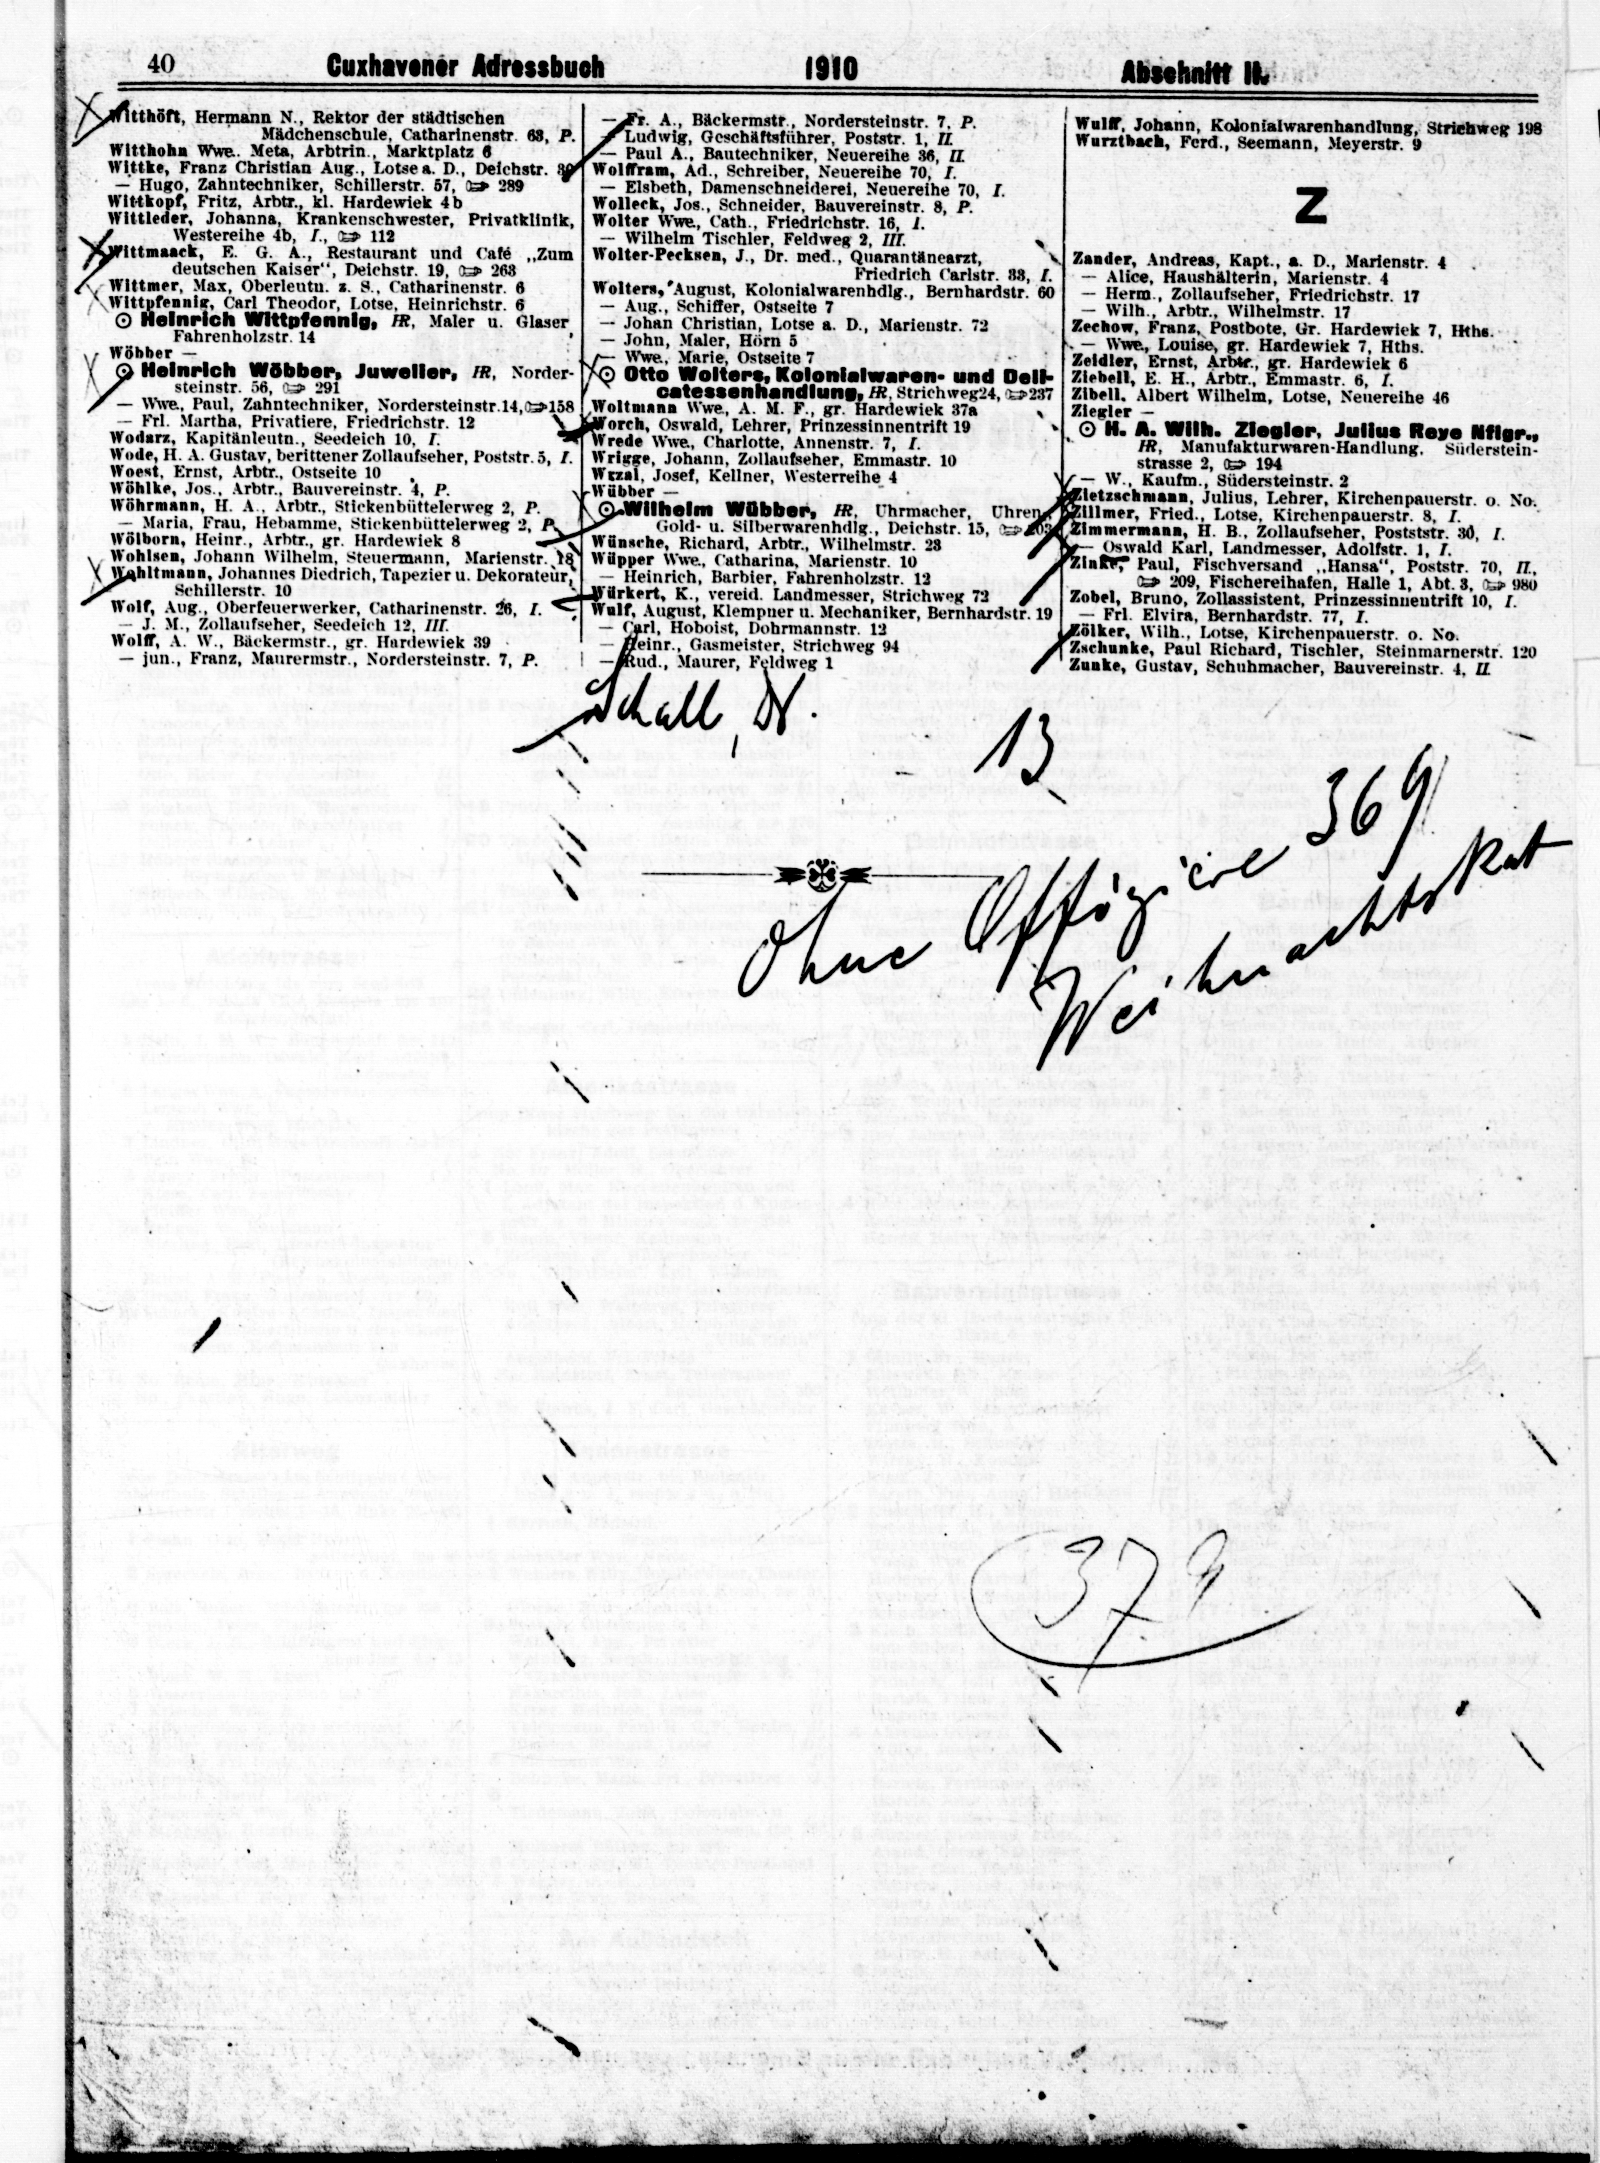 40 Cuxhavener Adressbuch 1910 Abschnitt II.
Witthöft, Hermann N., Rektor der städtischen
Mädchenschule, Catharinenstr. 63, P.
Witthohn Wwe. Meta, Arbtrin., Marktplatz 6
Wittke, Franz Christian Aug., Lotse a. D., Deichstr. 39
— Hugo, Zahntechniker, Schillerstr. 57, 289
Wittkopf, Fritz, Arbtr., kl. Hardewiek 4b
Wittleder, Johanna, Krankenschwester, Privatklinik,
Westereihe 4b, I., 112
Wittmaack, E. G. A., Restaurant und Café „Zum
deutschen Kaiser“, Deichstr. 19, 263
Wittmer, Max, Oberleutn. z. S., Catharinenstr. 6
Wittpfennig, Carl Theodor, Lotse, Heinrichstr. 6
⊙ Heinrich Wittpfennig, HR, Maler u. Glaser
Fahrenholzstr. 14
Wöbber —
⊙ Heinrich Wöbber, Juwelier, HR, Norder-
steinstr. 56, 291
— Wwe., Paul, Zahntechniker, Nordersteinstr. 14, 158
— Frl. Martha, Privatiere, Friedrichstr. 12
Wodarz, Kapitänleutn., Seedeich 10, I.
Wode, H. A. Gustav, berittener Zollaufseher, Poststr. 5, I.
Woest, Ernst, Arbtr., Ostseite 10
Wöhlke, Jos., Arbtr., Bauvereinstr. 4, P.
Wöhrmann, H. A., Arbtr., Stickenbüttelerweg 2, P.
— Maria, Frau, Hebamme, Stickenbüttelerweg 2, P.
Wölborn, Heinr., Arbtr., gr. Hardewiek 8
Wohlsen, Johann Wilhelm, Steuermann, Marienstr. 18
Wohltmann, Johannes Diedrich, Tapezier u. Dekorateur,
Schillerstr. 10
Wolf, Aug., Oberfeuerwerker, Catharinenstr. 26, I.
— J. M., Zollaufseher, Seedeich 12, III.
Wolff, A. W., Bäckermstr., gr. Hardewiek 39
— jun., Franz, Maurermstr., Nordersteinstr. 7, P.
— Fr. A., Bäckermstr., Nordersteinstr. 7, P.
— Ludwig, Geschäftsführer, Poststr. 1, II.
— Paul A., Bautechniker, Neuereihe 36, II.
Wolffram, Ad., Schreiber, Neuereihe 70, I.
— Elsbeth, Damenschneiderei, Neuereihe 70, I.
Wolleck, Jos., Schneider, Bauvereinstr. 8, P.
Wolter Wwe., Cath., Friedrichstr. 16, I.
— Wilhelm Tischler, Feldweg 2, III.
Wolter-Pecksen, J., Dr. med., Quarantänearzt,
Friedrich Carlstr. 33, I.
Wolters, August, Kolonialwarenhdlg., Bernhardstr. 60
— Aug., Schiffer, Ostseite 7
— Johan Christian, Lotse a. D., Marienstr. 72
— John, Maler, Hörn 5
— Wwe., Marie, Ostseite 7
⊙ Otto Wolters, Kolonialwaren- und Deli-
catessenhandlung, HR, Strichweg 24, 237
Woltmann Wwe., A. M. F., gr. Hardewiek 37a
Worch, Oswald, Lehrer, Prinzessinnentrift 19
Wrede Wwe., Charlotte, Annenstr. 7, I.
Wrigge, Johann, Zollaufseher, Emmastr. 10
Wrzal, Josef, Kellner, Westerreihe 4
Wübber —
⊙ Wilhelm Wübber, HR, Uhrmacher, Uhren,
Gold- u. Silberwarenhdlg., Deichstr. 15, 203
Wünsche, Richard, Arbtr., Wilhelmstr. 23
Wüpper Wwe., Catharina, Marienstr. 10
— Heinrich, Barbier, Fahrenholzstr. 12
Würkert, K., vereid. Landmesser, Strichweg 72
Wulf, August, Klempner u. Mechaniker, Bernhardstr. 19
— Carl, Hoboist, Dohrmannstr. 12
— Heinr., Gasmeister, Strichweg 94
— Rud., Maurer, Feldweg 1
Wulff, Johann, Kolonialwarenhandlung, Strichweg 198
Wurztbach, Ferd., Seemann, Meyerstr. 9
Z
Zander, Andreas, Kapt., a. D., Marienstr. 4
— Alice, Haushälterin, Marienstr. 4
— Herm., Zollaufseher, Friedrichstr. 17
— Wilh., Arbtr., Wilhelmstr. 17
Zechow, Franz, Postbote, Gr. Hardewiek 7, Hths.
— Wwe., Louise, gr. Hardewiek 7, Hths.
Zeidler, Ernst, Arbtr., gr. Hardewiek 6
Ziebell, E. H., Arbtr., Emmastr. 6, I.
Zibell, Albert Wilhelm, Lotse, Neuereihe 46
Ziegler —
⊙ H. A. Wilh. Ziegler, Julius Reye Nflgr.,
HR, Manufakturwaren-Handlung, Süderstein-
strasse 2, 194
— W., Kaufm., Südersteinstr. 2
Zietzschmann, Julius, Lehrer, Kirchenpauerstr. o. No.
Zillmer, Fried., Lotse, Kirchenpauerstr. 8, I.
Zimmermann, H. B., Zollaufseher, Postststr. 30, I.
— Oswald Karl, Landmesser, Adolfstr. 1, I.
Zinke, Paul, Fischversand „Hansa“, Poststr. 70, II.,
209, Fischereihafen, Halle 1, Abt. 3, 980
Zobel, Bruno, Zollassistent, Prinzessinnentrift 10, I.
— Frl. Elvira, Bernhardstr. 77, I.
Zölker, Wilh., Lotse, Kirchenpauerstr. o. No.
Zschunke, Paul Richard, Tischler, Steinmarnerstr. 120
Zunke, Gustav, Schuhmacher, Bauvereinstr. 4, II.
Schall, Dr.
13
Ohne Offiziere 369
Weihnachtskat
379